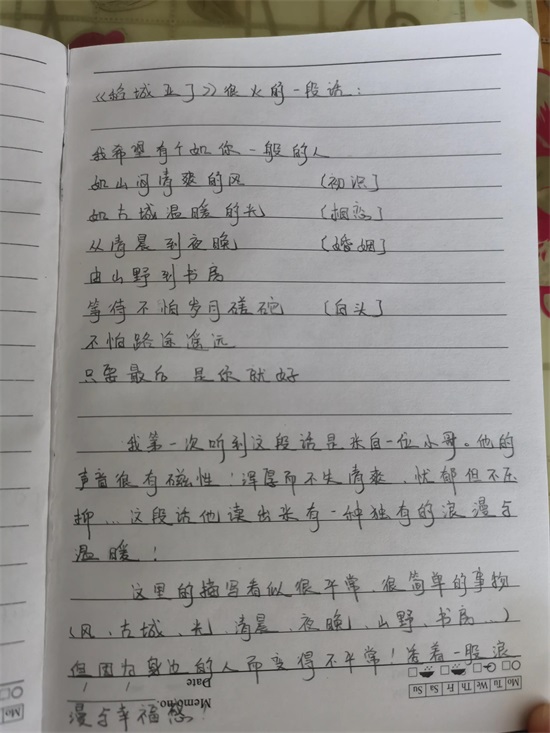 《稻城亚丁》很火的一段话：
我希望有个如你一般的人
如山间清爽的风 〔初识〕
如古城温暖的光 〔相恋〕
从清晨到夜晚 〔婚姻〕
由山野到书房
等待不怕岁月磋砣 〔白头〕
不怕路途遥远
只要最后是你就好
我第一次听到这段话是来自一位小哥。他的
声音很有磁性：浑厚而不失清爽、忧郁但不压
抑...这段话他读出来有一种独有的浪漫与
温暖！
这里的描写看似很平常、很简单的事物
(风、古城、光、清晨、夜晚、山野、书房...)
但因为身边的人而变得不平常！有着一股浪
漫与幸福感！
Mo Tu We Th Fr Sa Su
Date
Memo No.
Mo